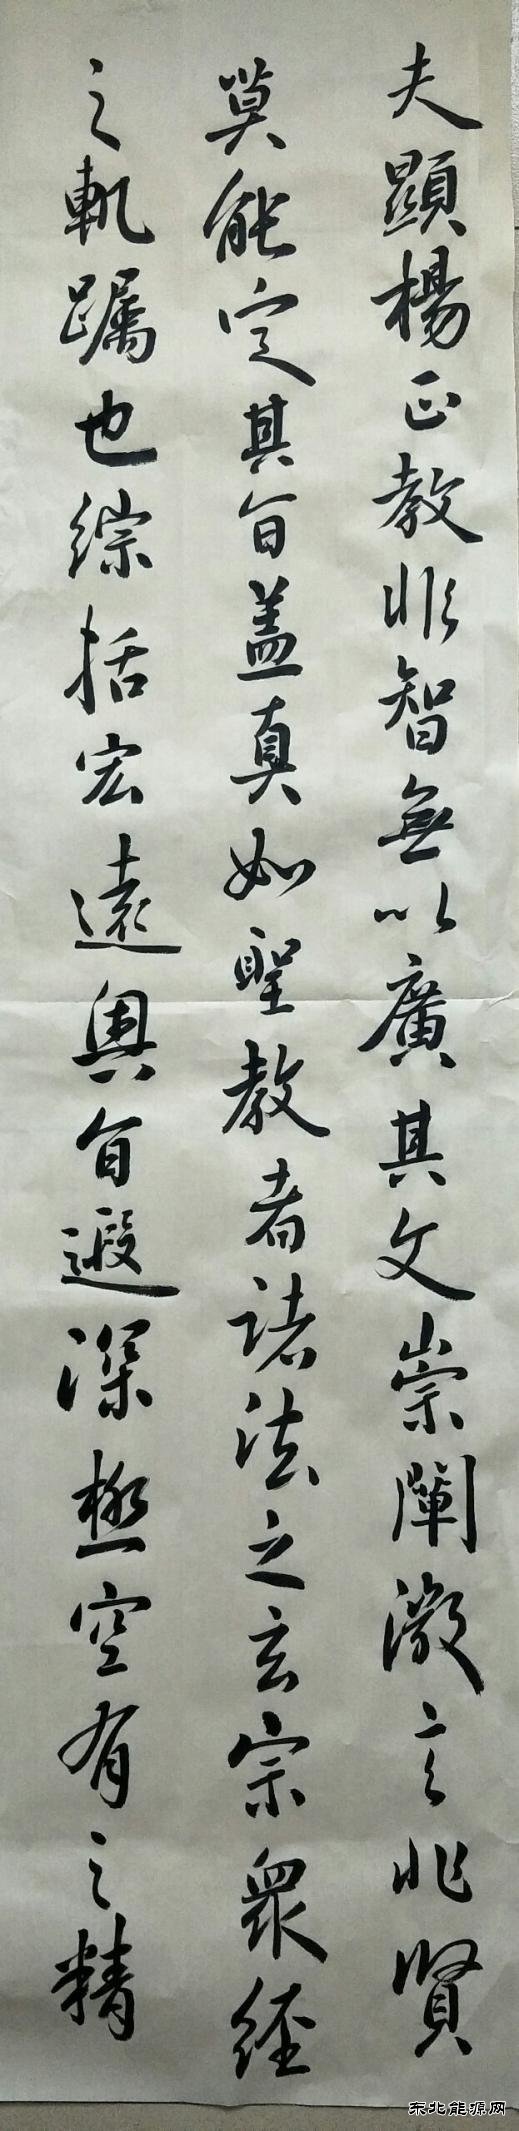 夫顯楊正教非智無以廣其文崇闡微言非賢
莫能定其旨盖真如聖教者諸法之玄宗衆經
之軌躅也綜括宏遠奧旨遐深極空有之精
东北能源网